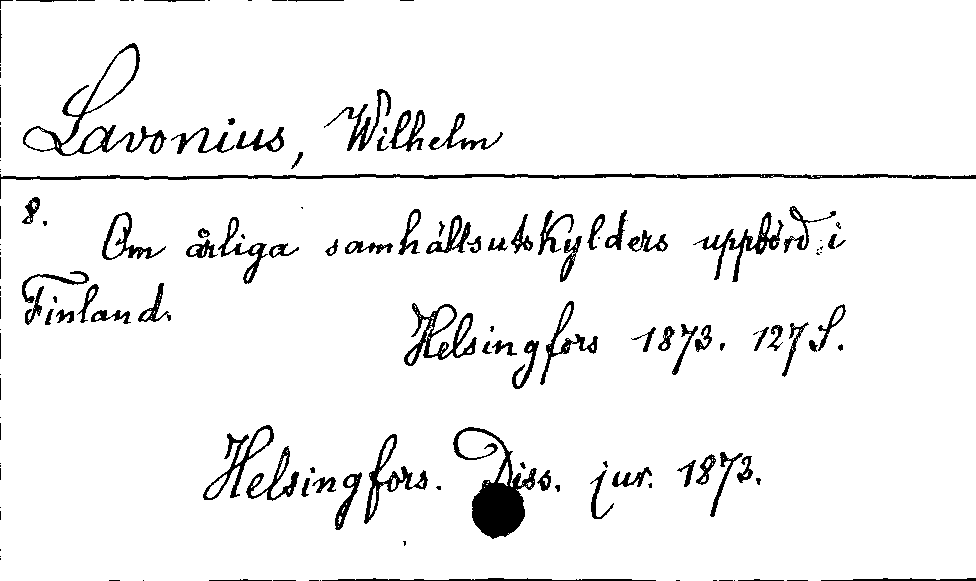 Lavonius, Wilhelm
8.
Om årliga samhällsutskylders uppbörd i
Finland.
Helsingfors 1873. 127 S.
Helsingfors. Diss. jur. 1873.